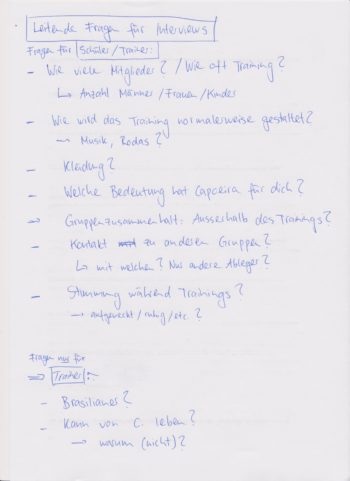 Leitende Fragen für Interviews
Fragen für Schüler/Trainer:
- Wie viele Mitglieder? / Wie oft Training?
↳ Anzahl Männer/Frauen/Kinder
- Wie wird das Training normalerweise gestaltet?
→ Musik, Rodas?
- Kleidung?
- Welche Bedeutung hat Capoeira für dich?
⇒ Gruppenzusammenhalt: Ausserhalb des Trainings?
- Kontakt zu anderen Gruppen?
↳ mit welchen? Nur andere Ableger?
- Stimmung während Trainings?
→ aufgeweckt/ruhig/etc.?
Fragen nur für
⇒ Trainer:
- Brasilianer?
- Kann von C. leben?
→ warum (nicht)?